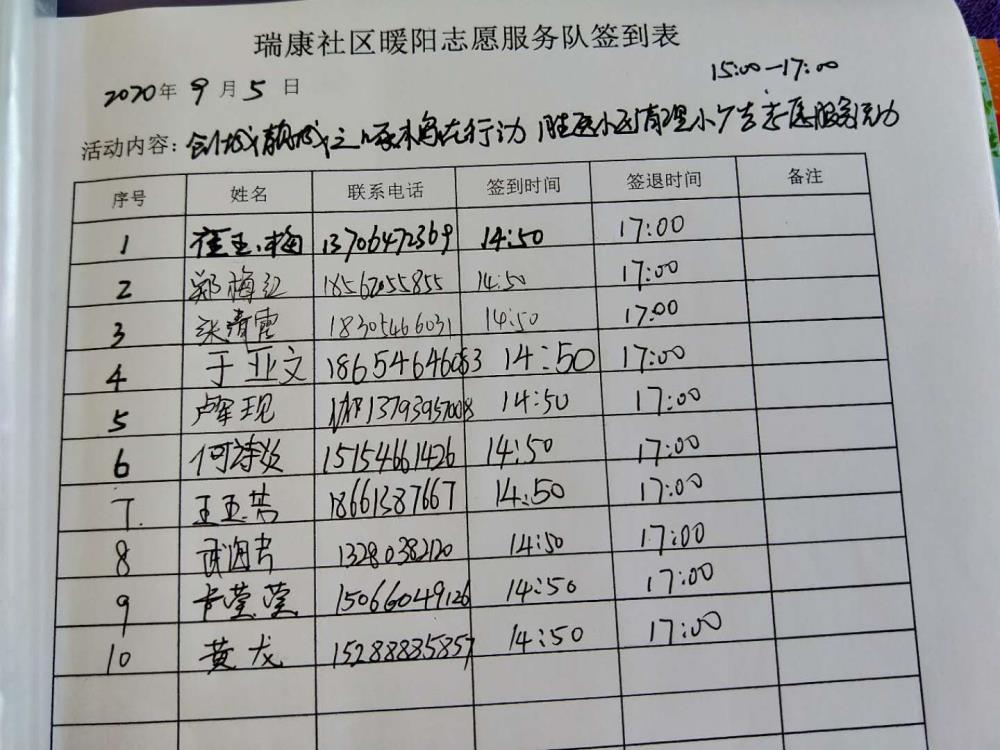 瑞康社区暖阳志愿服务队签到表
15:00—17:00
2020年 9 月 5 日
活动内容：创城靓城之啄木鸟在行动 胜医小区清理小广告志愿服务活动
序号 姓名 联系电话 签到时间 签退时间 备注
1 崔玉梅 13706472369 14:50 17:00
2 郑梅红 18562055855 14:50 17:00
3 张清霞 18305466031 14:50 17:00
4 于亚文 18654646053 14:50 17:00
5 13793957008 14:50 17:00
6 何诗 15154661426 14:50 17:00
7. 王玉芳 18661387667 14:50 17:00
8 13280382120 14:50 17:00
9 卞莹莹 15066049126 14:50 17:00
10 黄龙 15288835857 14:50 17:00